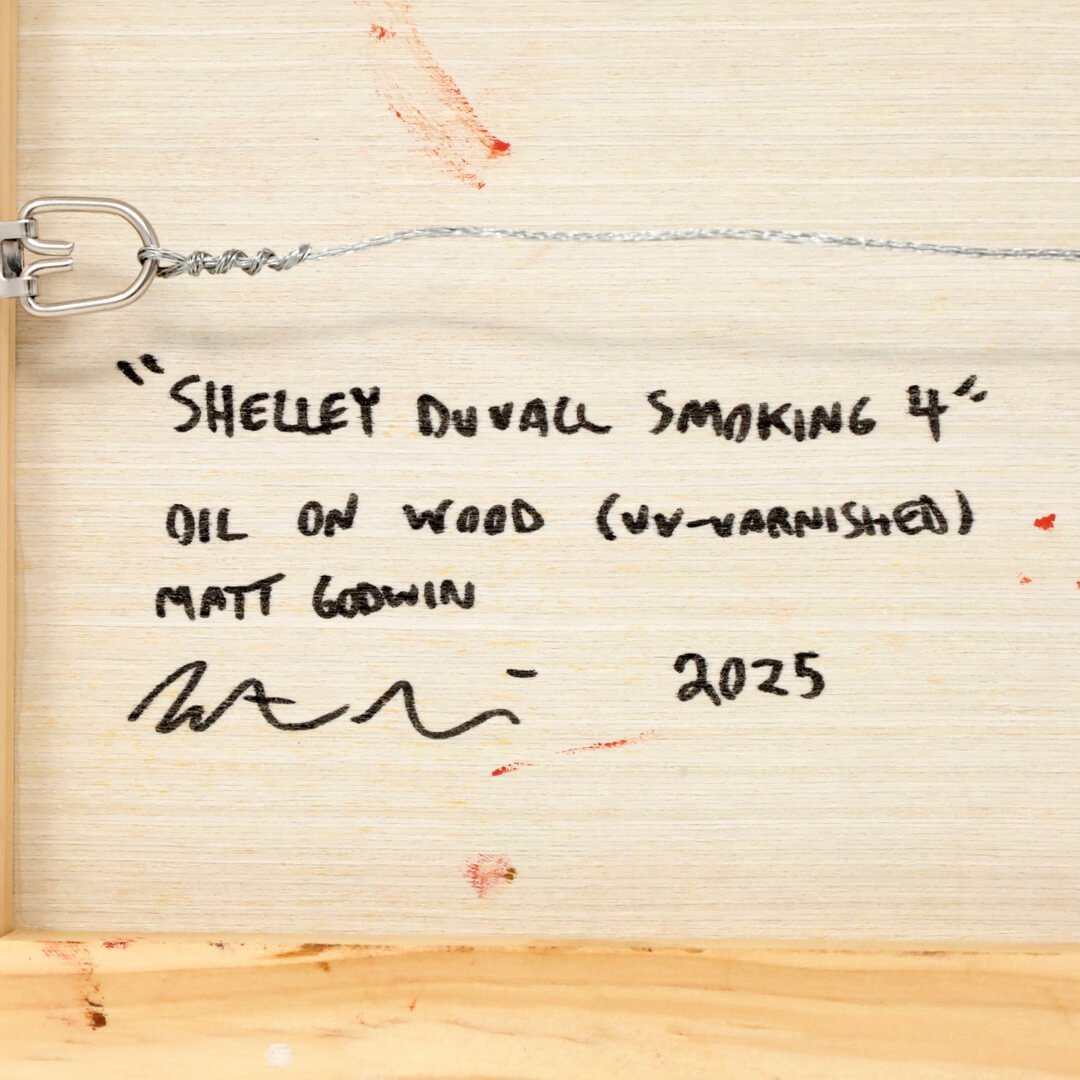 "SHELLEY DUVALL SMOKING 4"
OIL ON WOOD (UV-VARNISHED)
MATT GODWIN
2025